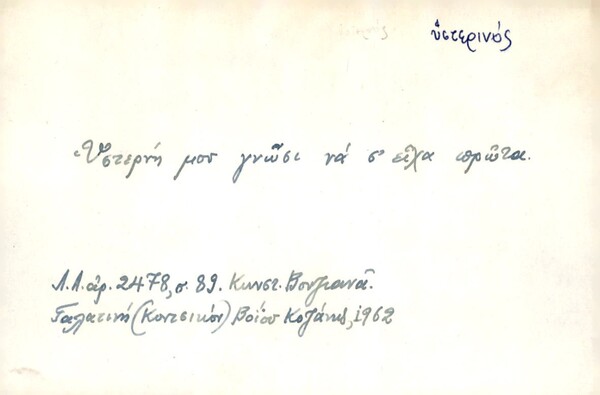 ὑστερινός
Ὑστερνή μου γνῶσι νά σ' εἶχα πρῶτα.
Λ.Λ. ἀρ. 2478, σ. 89. Κωνστ.
Γαλατινή (Κοντσικόν) Βοΐου Κοζάνης, 1962